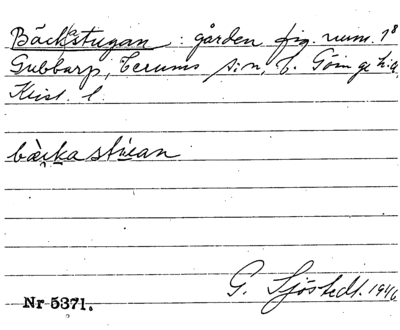 Bäckastugan : gården fig. num. 1⁸
Gubbarp, Verums s:n, V. Göinge h:d,
Krist. l.
bàcka stúan
G. Sjöstedt. 1946
Nr 5371.